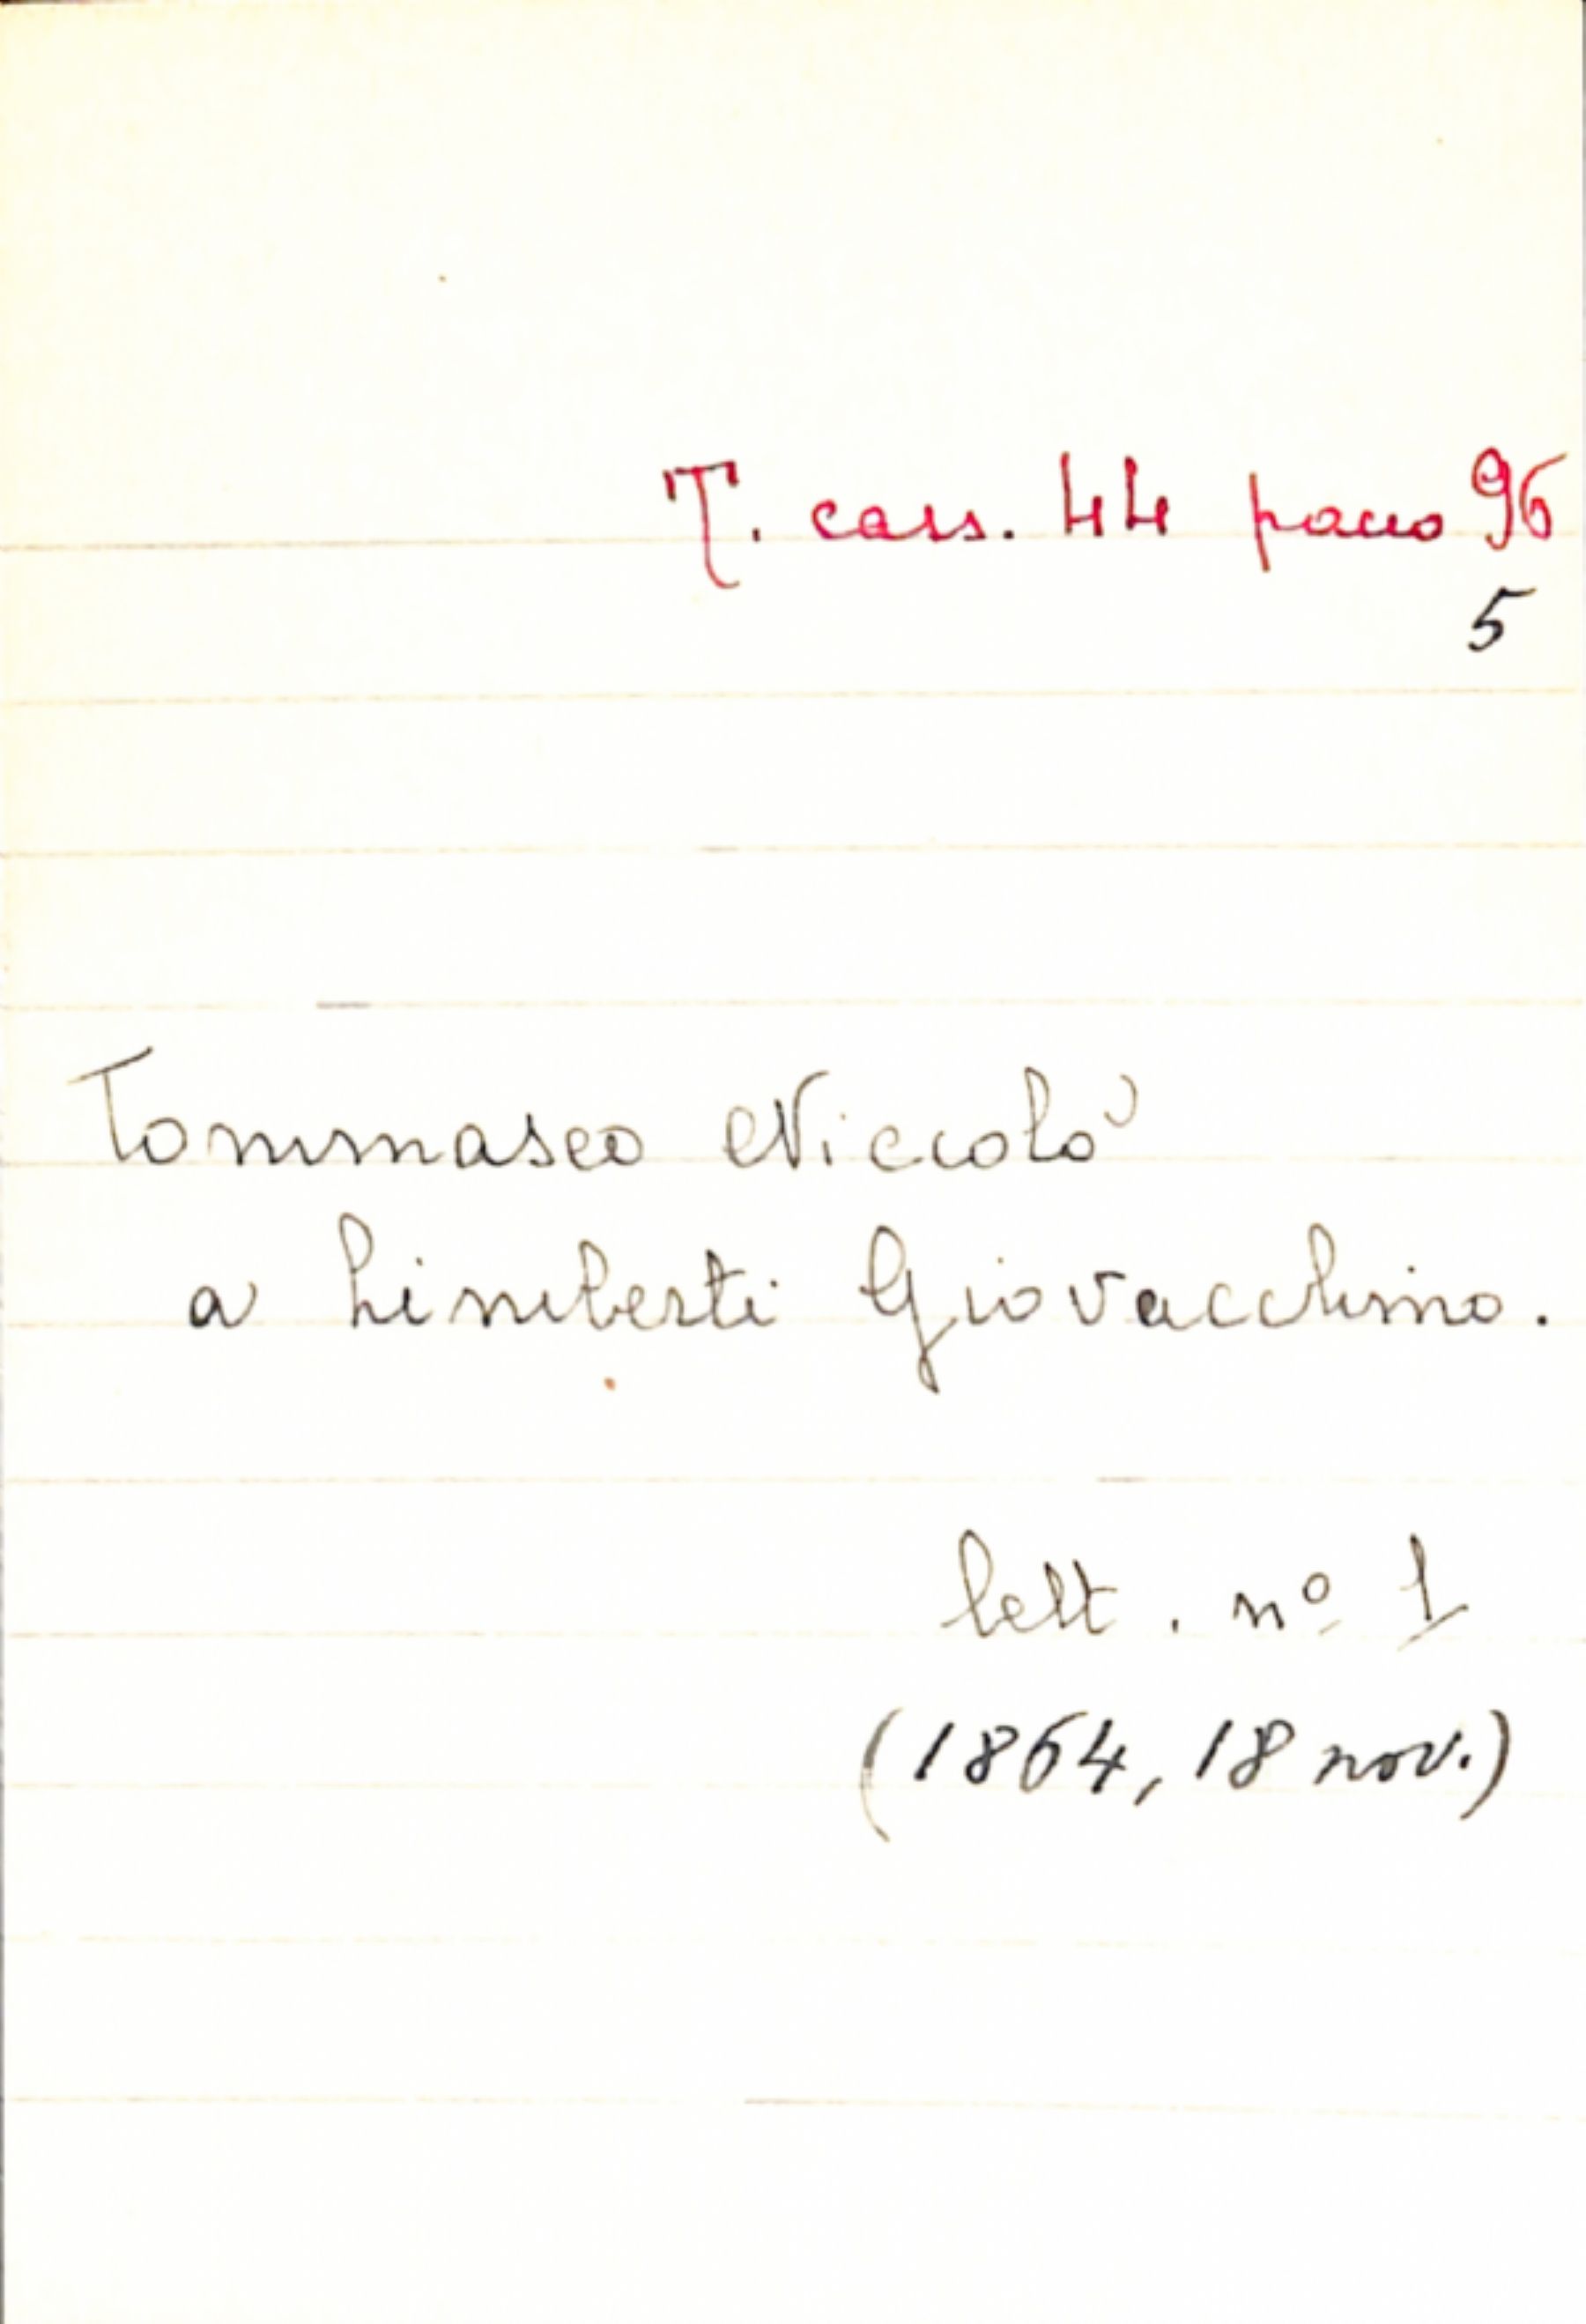 T. cass. 44 pacco 96
5
Tommaseo Niccolò
a Limberti Giovacchino.
lett. nº 1
(1864, 18 nov.)